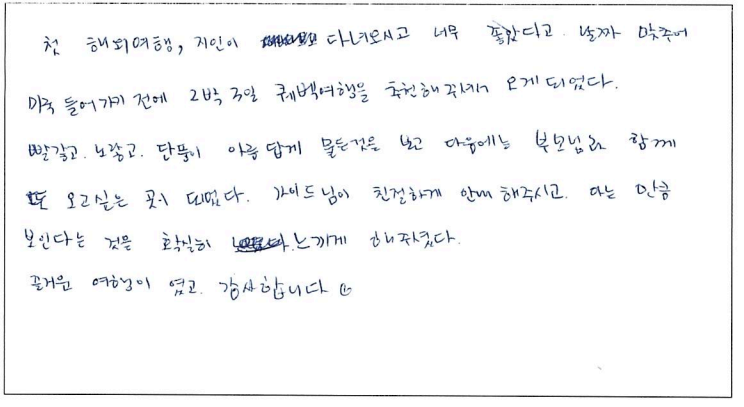 첫 해외여행, 지인이 다녀오시고 너무 좋았다고. 날짜 맞추어
미국 들어가기 전에 2박 3일 퀘백여행을 추천해주셔서 오게되었다.
빨갛고. 노랗고. 단풍이 아름답게 물든것을 보고 다음에는 부모님과 함께
또 오고싶은 곳이 되었다. 가이드님이 친절하게 안내해주시고. 아는 만큼
보인다는 것을 확실히 느끼게 해주셨다.
즐거운 여행이 였고. 감사합니다